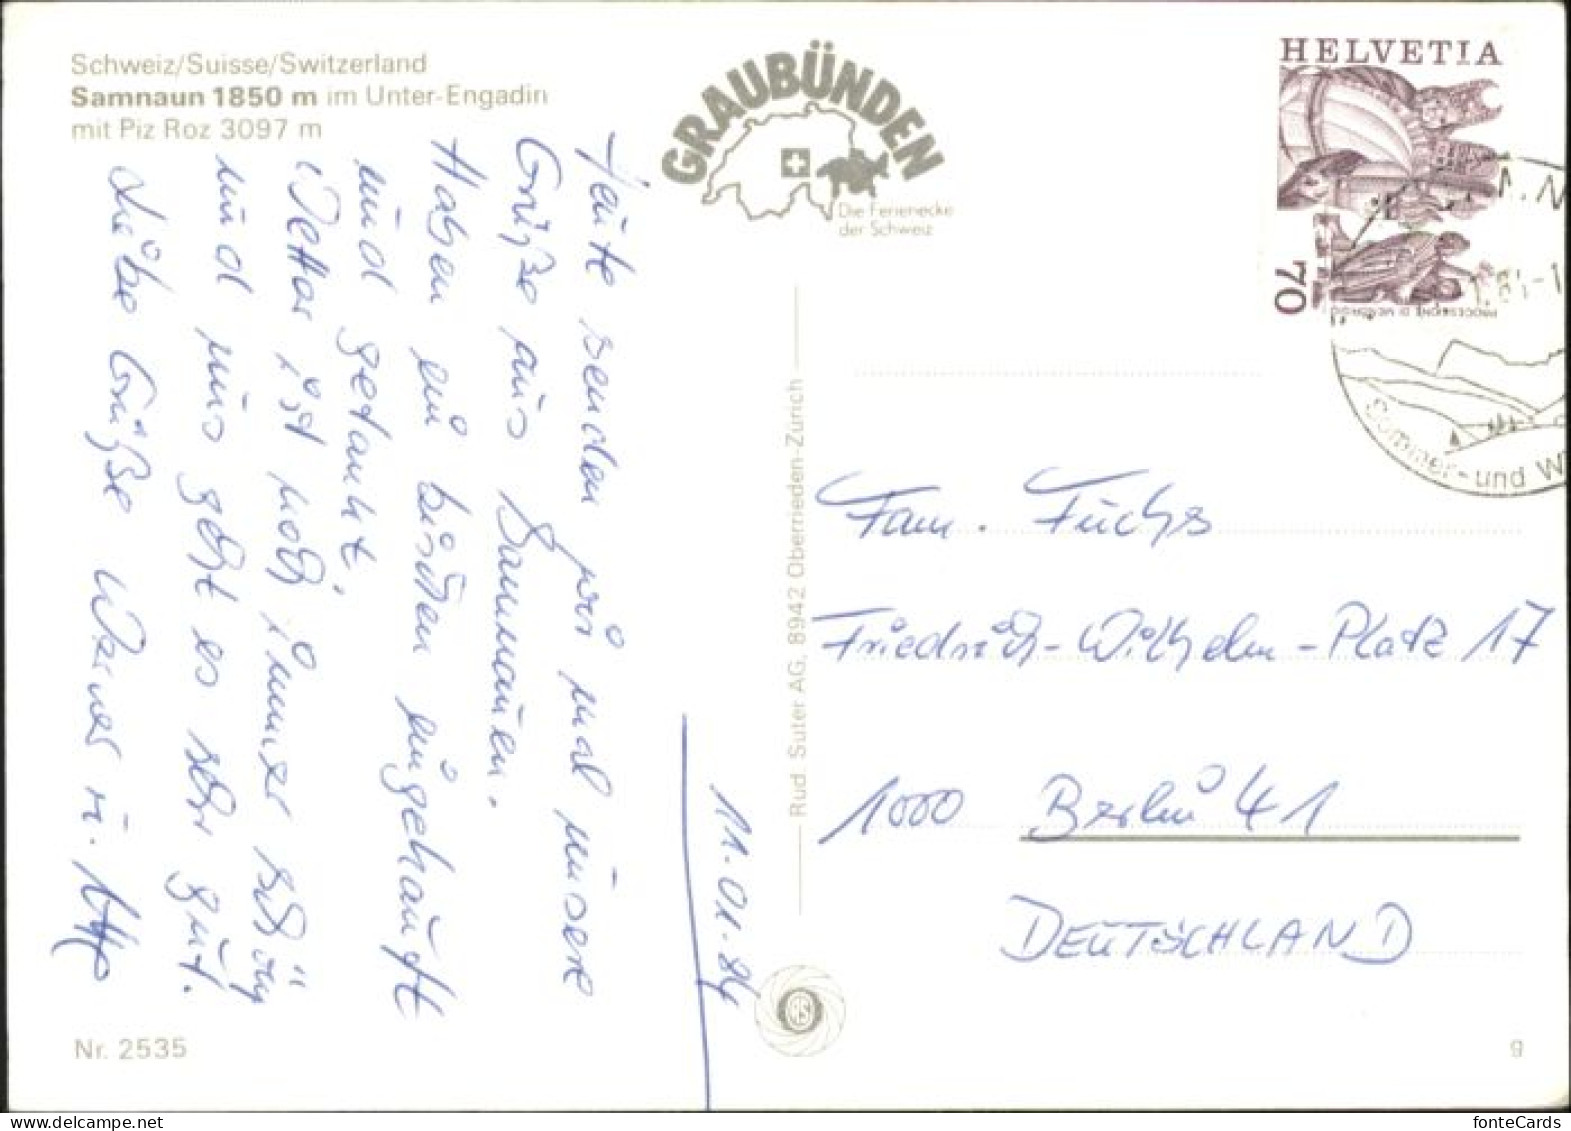 Schweiz/Suisse/Switzerland
Samnaun 1850 m im Unter-Engadin
mit Piz Roz 3097 m
GRAUBÜNDEN
Die Ferienecke
der Schweiz
HELVETIA
70
PROCESSIONE DI MENDRISIO
Sommer- und W
Heute senden wir mal unsere
Grüße aus Samnauen.
Haben ein bischen eingekauft
und getankt.
Wetter ist noch immer schön
und uns geht es sehr gut.
Liebe Grüße Werner u.
11.01.84
Rud. Suter AG, 8942 Oberrieden-Zürich
Fam. Fuchs
Friedrich-Wilhelm-Platz 17
1000 Berlin 41
DEUTSCHLAND
RS
Nr. 2535
g
fonteCards